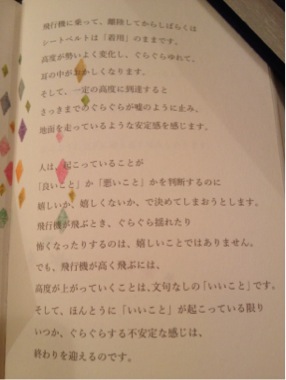 飛行機に乗って、離陸してからしばらくは
シートベルトは「着用」のままです。
高度が勢いよく変化し、ぐらぐらゆれて、
耳の中がおかしくなります。
そして、一定の高度に到達すると
さっきまでのぐらぐらが嘘のように止み、
地面を走っているような安定感を感じます。
人は、起こっていることが
「良いこと」か「悪いこと」かを判断するのに
嬉しいか、嬉しくないか、で決めてしまおうとします。
飛行機が飛ぶとき、ぐらぐら揺れたり
怖くなったりするのは、嬉しいことではありません。
でも、飛行機が高く飛ぶには、
高度が上がっていくことは、文句なしの「いいこと」です。
そして、ほんとうに「いいこと」が起こっている限り
いつか、ぐらぐらする不安定な感じは、
終わりを迎えるのです。